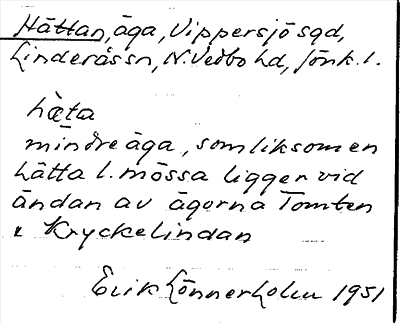 Hättan, äga, Vippersjö sgd,
Linderås sn, N. Vedbo hd, Jönk. l.
hæ̀ta
mindre äga, som liksom en
hätta l. mössa ligger vid
ändan av ägorna Tomten
& Kryckelindan
Erik Lönnerholm 1951